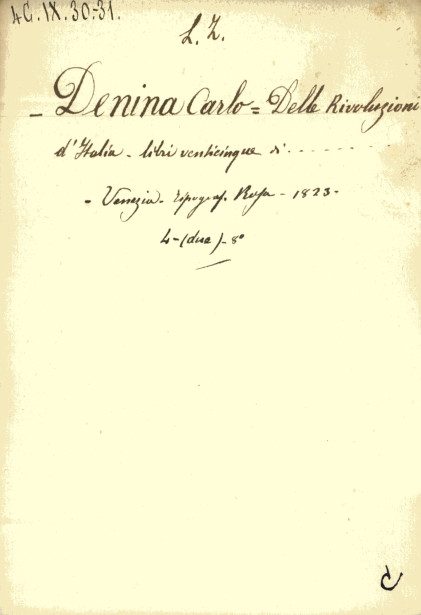 4C.IX.30.-31.
L. Z.
- Denina Carlo = Delle Rivoluzioni
d'Italia - libri venticinque di - - - - - -
- Venezia - Tipograf. Rosa - 1823 -
4 - (due) - 8°